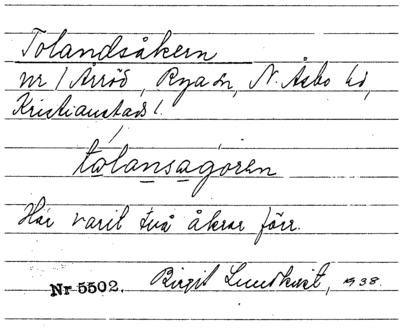 Tolandsåkern
nr 1 Årröd, Rya sn, N. Åsbo hd,
Kristianstads l.
tolansagóren
Har varit två åkrar förr.
Nr 5502. Birgit Lundkvist, 1938.